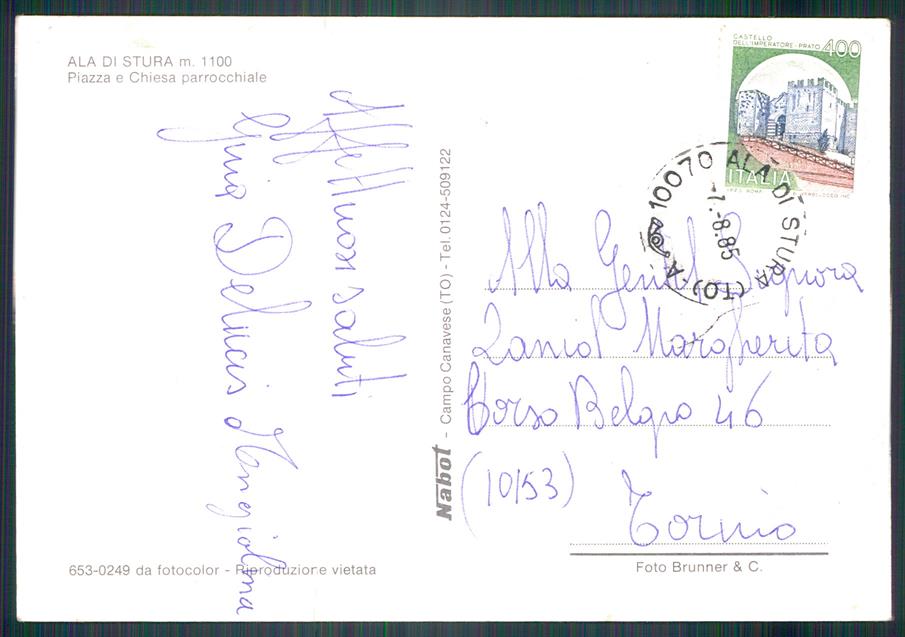 ALA DI STURA m. 1100
Piazza e Chiesa parrocchiale
Affettuosi saluti
Delucis
653-0249 da fotocolor - Riproduzione vietata
Nabot - Campo Canavese (TO) - Tel. 0124-509122
CASTELLO
DELL'IMPERATORE - PRATO 400
ITALIA
10070 ALA DI STURA (TO)
-7.-8.85
Alla Gentil Signora
Margherita
Corso Belgio 46
(10153)
Torino
Foto Brunner & C.